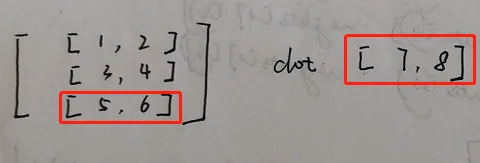 [ [ 1, 2 ]
[ 3, 4 ] dot [ 7, 8 ]
[ 5, 6 ] ]